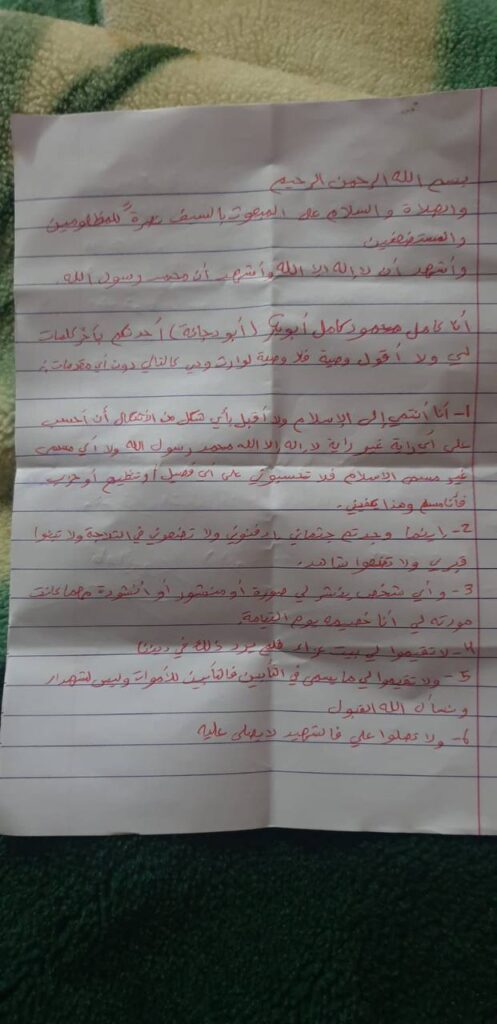 بسم الله الرحمن الرحيم
والصلاة والسلام على المبعوث بالسيف نصرة للمظلومين
والمستضعفين
وأشهد أن لا إله إلا الله وأشهد أن محمد رسول الله.
أنا كامل محمود كامل أبوبكر (أبو دجانة) أحدثكم بآخر كلمات
لي ولا أقول وصية فلا وصية لوارث وهي كالتالي دون أي مقدمات:
1- أنا أنتمي إلى الإسلام ولا أقبل بأي شكل من الأشكال أن أحسب
على أي راية غير راية لا إله إلا الله محمد رسول الله ولا أي مسمى
غير مسمى الإسلام فلا تحسبوني على أي فصيل أو تنظيم أو حزب
فأنا مسلم وهذا يكفيني.
2- إينما وجدتم جثماني إدفنوني ولا تضعوني في الثلاجة ولا تبنوا
قبري ولا تضعوا شاهد.
3- وأي شخص ينشر لي صورة أو منشور أو أنشودة مهما كانت
مودته لي أنا خصيمه يوم القيامة.
4- لا تقيموا لي بيت عزاء فلم يرد ذلك في ديننا
5- ولا تقيموا لي ما يسمى في التأبين فالتأبين للأموات وليس للشهداء
ونسأل الله القبول
6- ولا تصلوا علي فالشهيد لا يصلى عليه